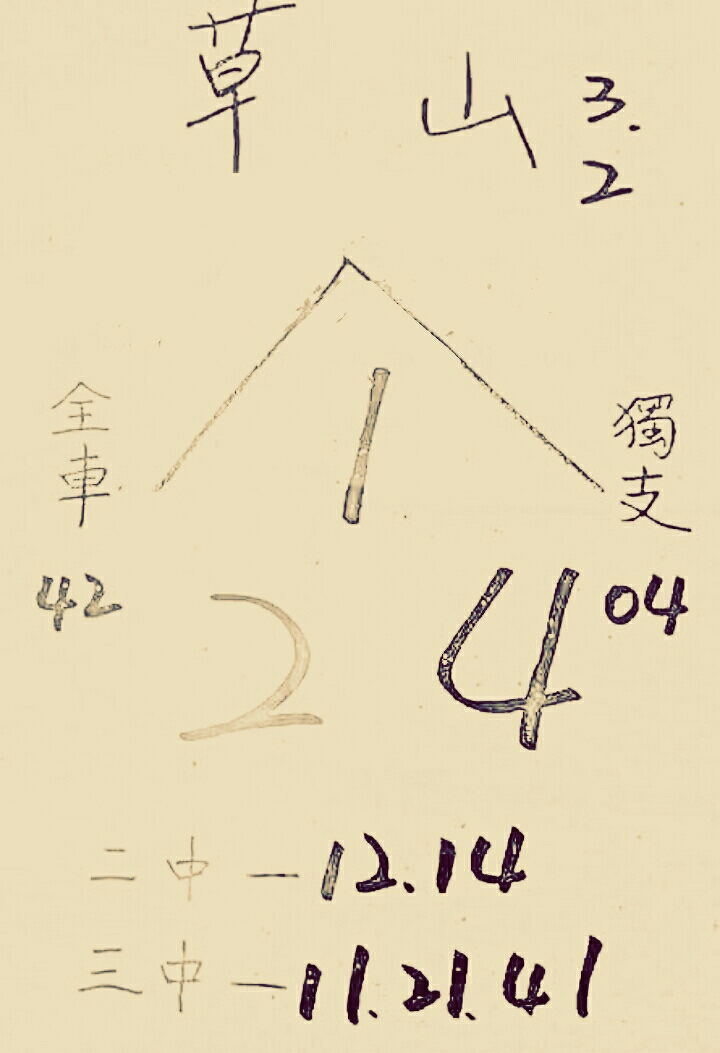 草山 3.2
1
全車 獨支
42 2 4 04
二中－12.14
三中－11.21.41